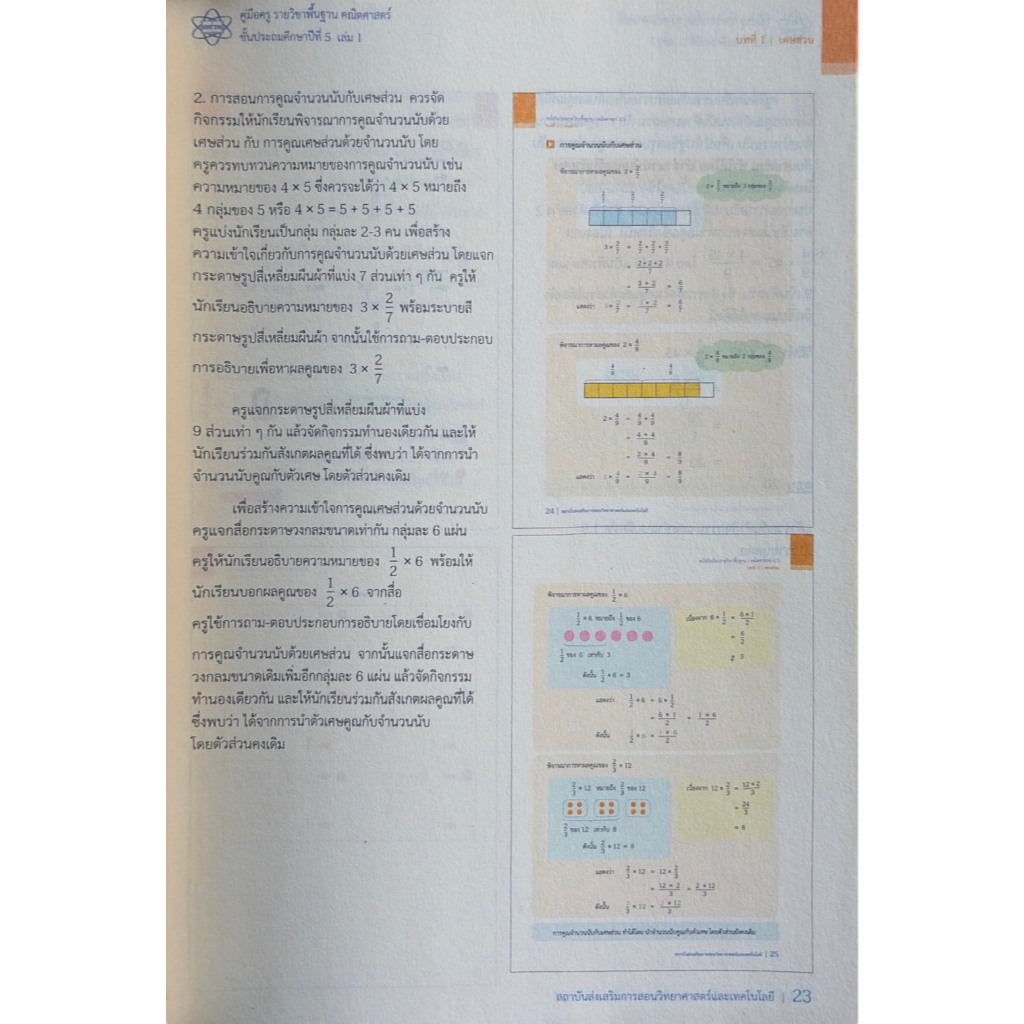 คู่มือครู รายวิชาพื้นฐาน คณิตศาสตร์
ชั้นประถมศึกษาปีที่ 5 เล่ม 1
บทที่ 1 | เศษส่วน
2. การสอนการคูณจำนวนนับกับเศษส่วน ควรจัด
กิจกรรมให้นักเรียนพิจารณาการคูณจำนวนนับด้วย
เศษส่วน กับ การคูณเศษส่วนด้วยจำนวนนับ โดย
ครูควรทบทวนความหมายของการคูณจำนวนนับ เช่น
ความหมายของ 4 × 5 ซึ่งควรจะได้ว่า 4 × 5 หมายถึง
4 กลุ่มของ 5 หรือ 4 × 5 = 5 + 5 + 5 + 5
ครูแบ่งนักเรียนเป็นกลุ่ม กลุ่มละ 2-3 คน เพื่อสร้าง
ความเข้าใจเกี่ยวกับการคูณจำนวนนับด้วยเศษส่วน โดยแจก
กระดาษรูปสี่เหลี่ยมผืนผ้าที่แบ่ง 7 ส่วนเท่า ๆ กัน ครูให้
นักเรียนอธิบายความหมายของ 3 × 2/7 พร้อมระบายสี
กระดาษรูปสี่เหลี่ยมผืนผ้า จากนั้นใช้การถาม-ตอบประกอบ
การอธิบายเพื่อหาผลคูณของ 3 × 2/7
ครูแจกกระดาษรูปสี่เหลี่ยมผืนผ้าที่แบ่ง
9 ส่วนเท่า ๆ กัน แล้วจัดกิจกรรมทำนองเดียวกัน และให้
นักเรียนร่วมกันสังเกตผลคูณที่ได้ ซึ่งพบว่า ได้จากการนำ
จำนวนนับคูณกับตัวเศษ โดยตัวส่วนคงเดิม
เพื่อสร้างความเข้าใจการคูณเศษส่วนด้วยจำนวนนับ
ครูแจกสื่อกระดาษวงกลมขนาดเท่ากัน กลุ่มละ 6 แผ่น
ครูให้นักเรียนอธิบายความหมายของ 1/2 × 6 พร้อมให้
นักเรียนบอกผลคูณของ 1/2 × 6 จากสื่อ
ครูใช้การถาม-ตอบประกอบการอธิบายโดยเชื่อมโยงกับ
การคูณจำนวนนับด้วยเศษส่วน จากนั้นแจกสื่อกระดาษ
วงกลมขนาดเดิมเพิ่มอีกกลุ่มละ 6 แผ่น แล้วจัดกิจกรรม
ทำนองเดียวกัน และให้นักเรียนร่วมกันสังเกตผลคูณที่ได้
ซึ่งพบว่า ได้จากการนำตัวเศษคูณกับจำนวนนับ
โดยตัวส่วนคงเดิม
การคูณจำนวนนับกับเศษส่วน
พิจารณาการหาผลคูณของ 3 × 2/7
3 × 2/7 หมายถึง 3 กลุ่มของ 2/7
2/7 2/7 2/7
3 × 2/7 = 2/7 + 2/7 + 2/7
= 2+2+2/7
= 3 × 2/7 = 6/7
แสดงว่า 3 × 2/7 = 3 × 2/7 = 6/7
พิจารณาการหาผลคูณของ 2 × 4/9
2 × 4/9 หมายถึง 2 กลุ่มของ 4/9
4/9 4/9
2 × 4/9 = 4/9 + 4/9
= 4 + 4/9
= 2 × 4/9 = 8/9
แสดงว่า 2 × 4/9 = 2 × 4/9 = 8/9
24 | สถาบันส่งเสริมการสอนวิทยาศาสตร์และเทคโนโลยี
พิจารณาการหาผลคูณของ 1/2 × 6
1/2 × 6 หมายถึง 1/2 ของ 6
1/2 ของ 6 เท่ากับ 3
ดังนั้น 1/2 × 6 = 3
เนื่องจาก 6 × 1/2 = 6 × 1/2
= 6/2
= 3
แสดงว่า 1/2 × 6 = 6 × 1/2
= 6 × 1/2 = 1 × 6/2
ดังนั้น 1/2 × 6 = 1 × 6/2
พิจารณาการหาผลคูณของ 2/3 × 12
2/3 × 12 หมายถึง 2/3 ของ 12
2/3 ของ 12 เท่ากับ 8
ดังนั้น 2/3 × 12 = 8
เนื่องจาก 12 × 2/3 = 12 × 2/3
= 24/3
= 8
แสดงว่า 2/3 × 12 = 12 × 2/3
= 12 × 2/3 = 2 × 12/3
ดังนั้น 2/3 × 12 = 2 × 12/3
การคูณจำนวนนับกับเศษส่วน ทำได้โดย นำจำนวนนับคูณกับตัวเศษ โดยตัวส่วนยังคงเดิม
สถาบันส่งเสริมการสอนวิทยาศาสตร์และเทคโนโลยี | 25
สถาบันส่งเสริมการสอนวิทยาศาสตร์และเทคโนโลยี | 23